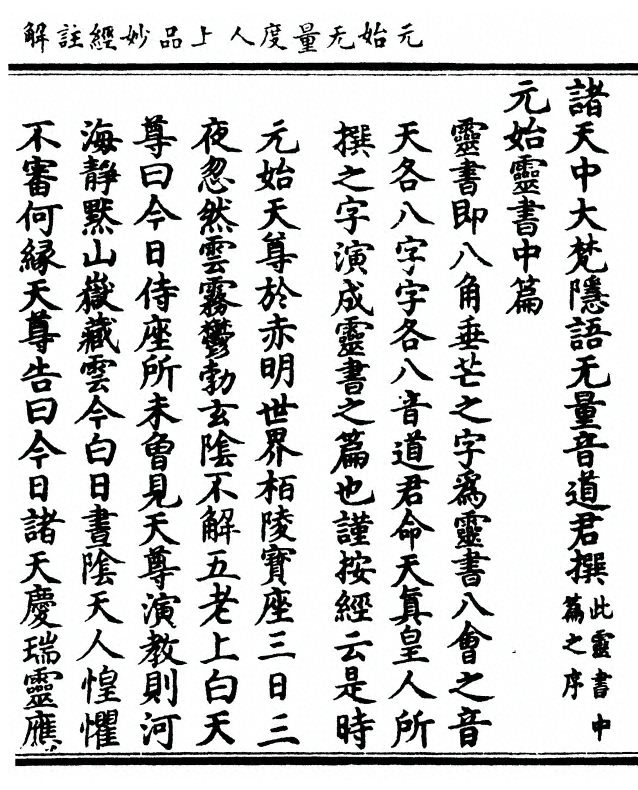 元始无量度人上品妙經註解
諸天中大梵隱語无量音道君撰此靈書中篇之序
元始靈書中篇
靈書即八角垂芒之字爲靈書八會之音
天各八字字各八音道君命天眞皇人所
撰之字演成靈書之篇也謹按經云是時
元始天尊於赤明世界栢陵寳座三日三
夜忽然雲霧鬱勃玄陰不解五老上白天
尊曰今日侍座所未曾見天尊演教則河
海靜默山嶽藏雲今白日晝陰天人惶懼
不審何縁天尊告曰今日諸天慶瑞靈應